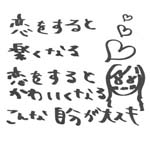 恋をすると
繋くなる
恋をすると
かわいくなる
こんな自分が大スキ